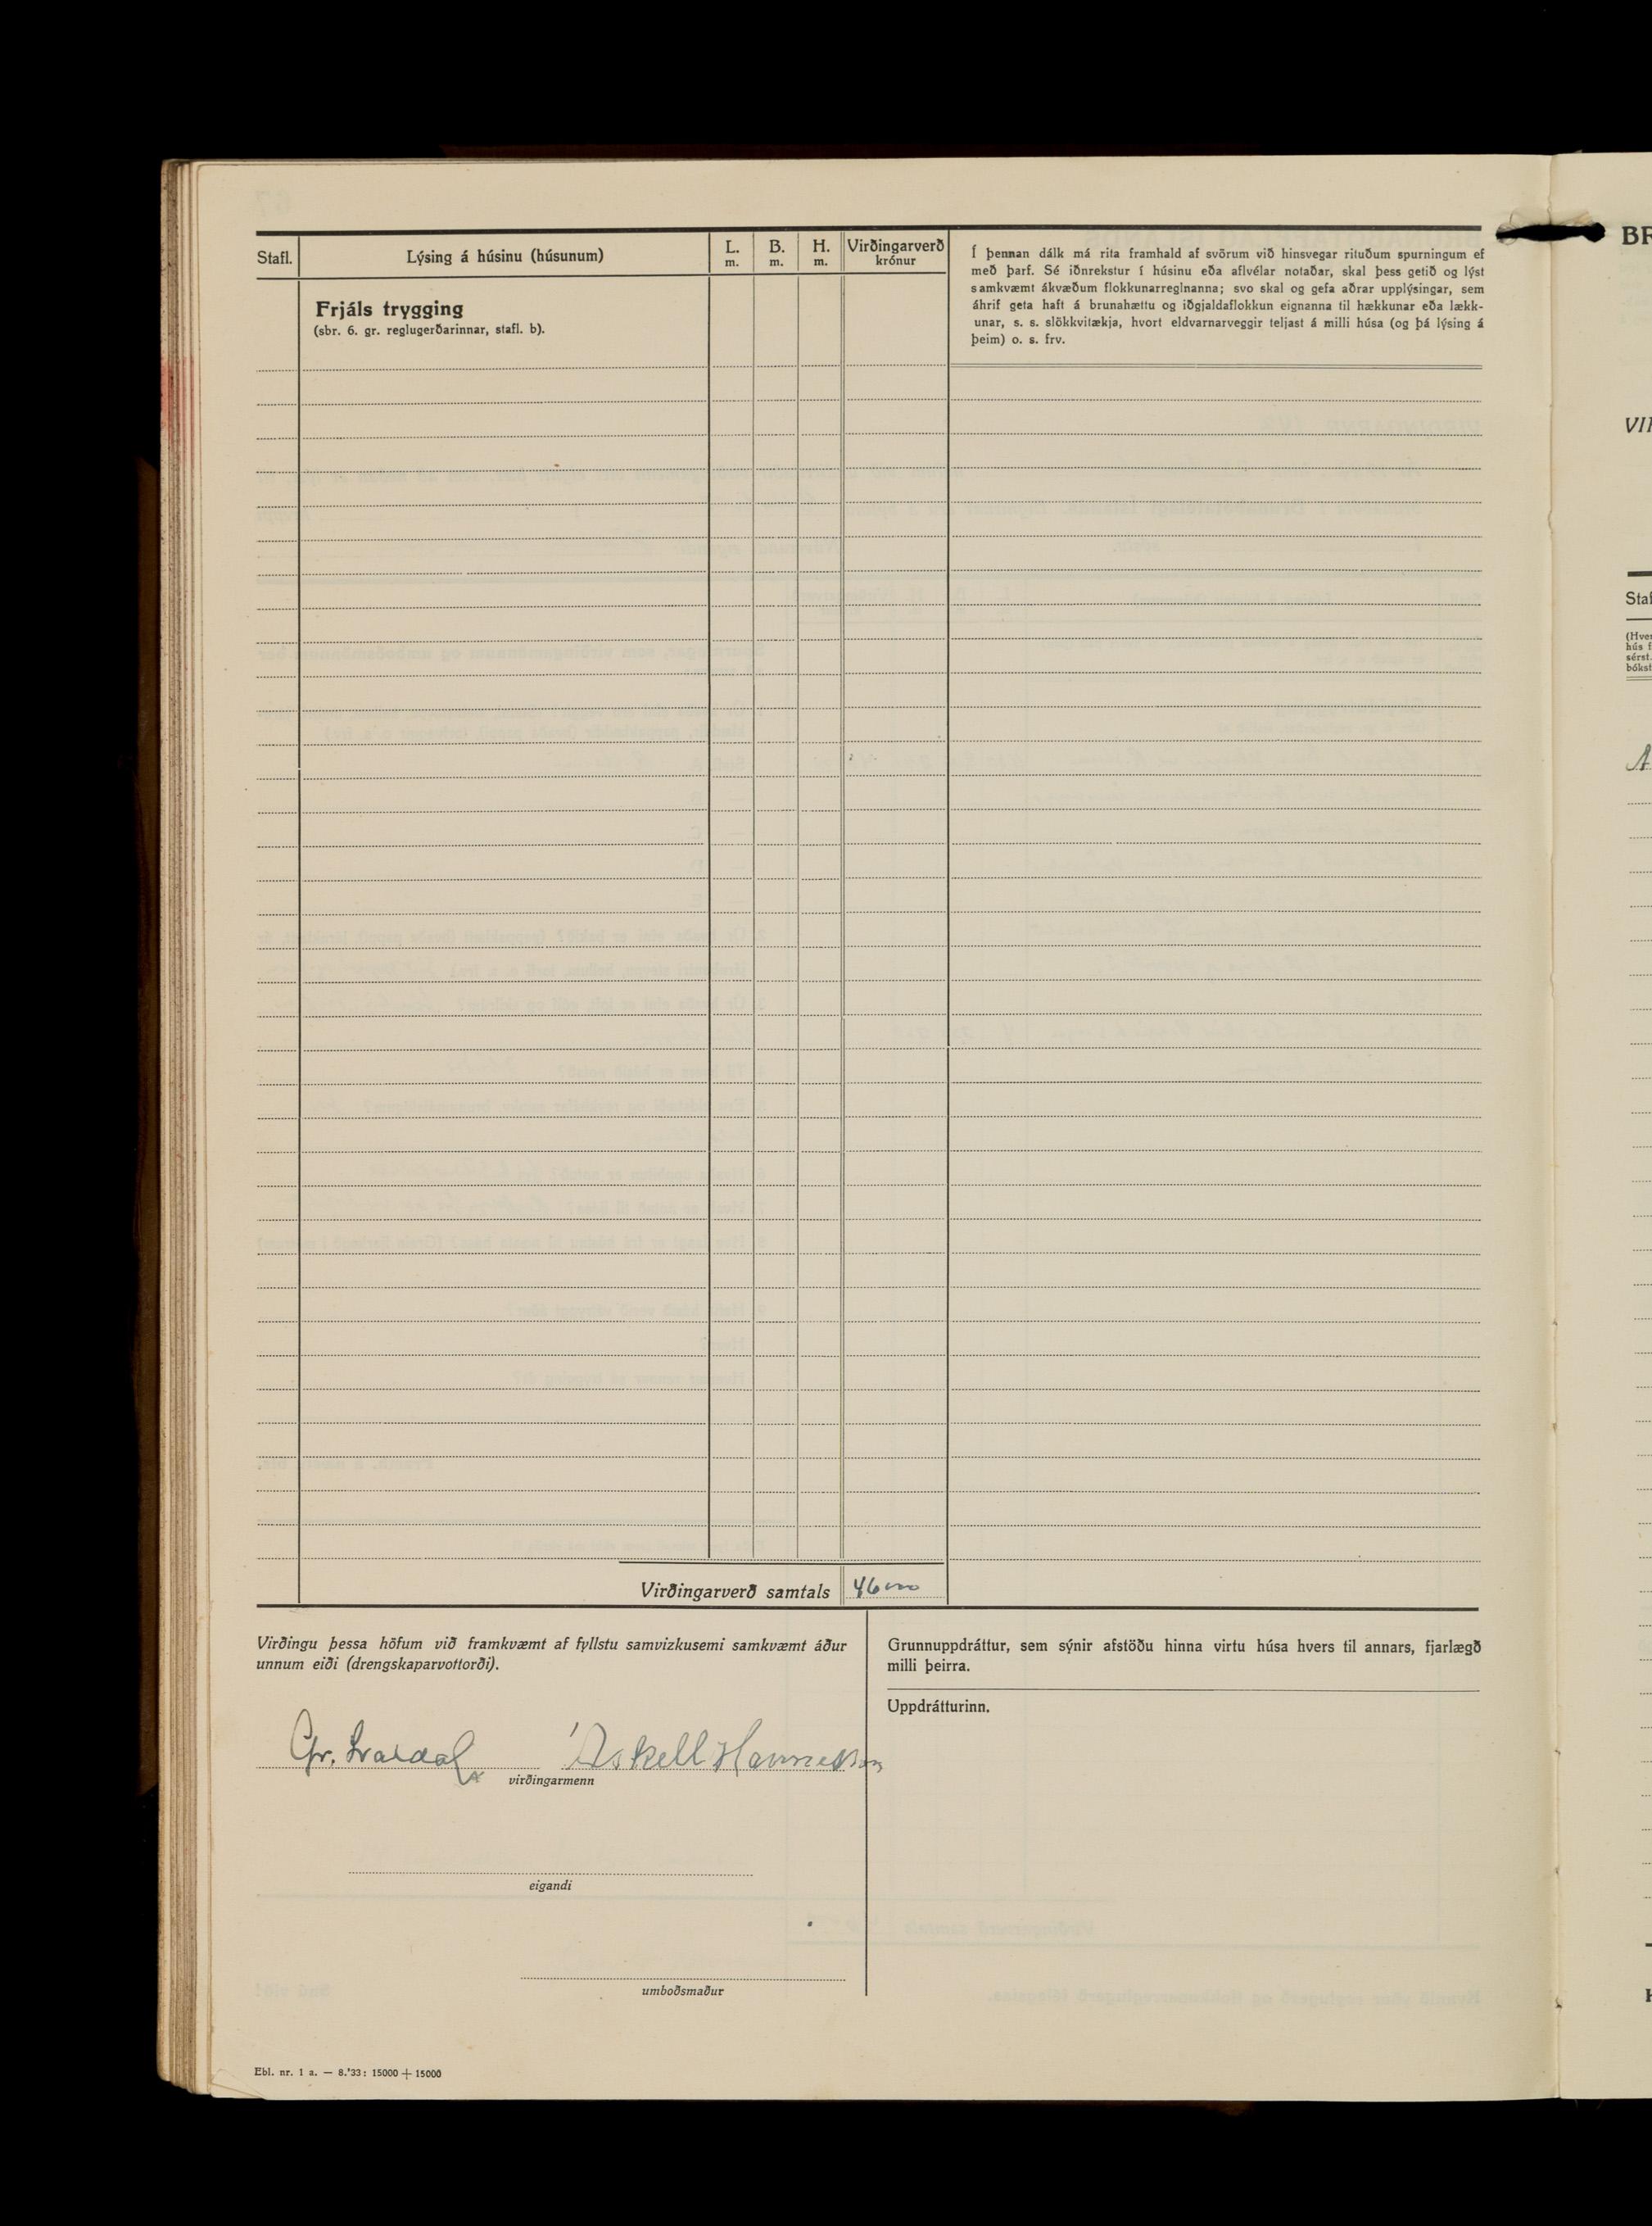 Stafl.
Lýsing á húsinu (húsunum)
L.
m.
B.
m.
H.
m.
Virðingarverð
krónur
Í þennan dálk má rita framhald af svörum við hinsvegar rituðum spurningum ef
með þarf. Sé iðnrekstur í húsinu eða aflvélar notaðar, skal þess getið og lýst
samkvæmt ákvæðum flokkunarreglnanna; svo skal og gefa aðrar upplýsingar, sem
áhrif geta haft á brunahættu og iðgjaldaflokkun eignanna til hækkunar eða lækk-
unar, s. s. slökkvitækja, hvort eldvarnarveggir teljast á milli húsa (og þá lýsing á
þeim) o. s. frv.
Frjáls trygging
(sbr. 6. gr. reglugerðarinnar, stafl. b).
Virðingarverð samtals
Virðingu þessa höfum við framkvæmt af fyllstu samvizkusemi samkvæmt áður
unnum eiði (drengskaparvottorði).
Áskell Hannesson
virðingarmenn
eigandi
umboðsmaður
Grunnuppdráttur, sem sýnir afstöðu hinna virtu húsa hvers til annars, fjarlægð
milli þeirra.
Uppdrátturinn.
Ebl. nr. 1 a. — 8.'33: 15000 + 15000